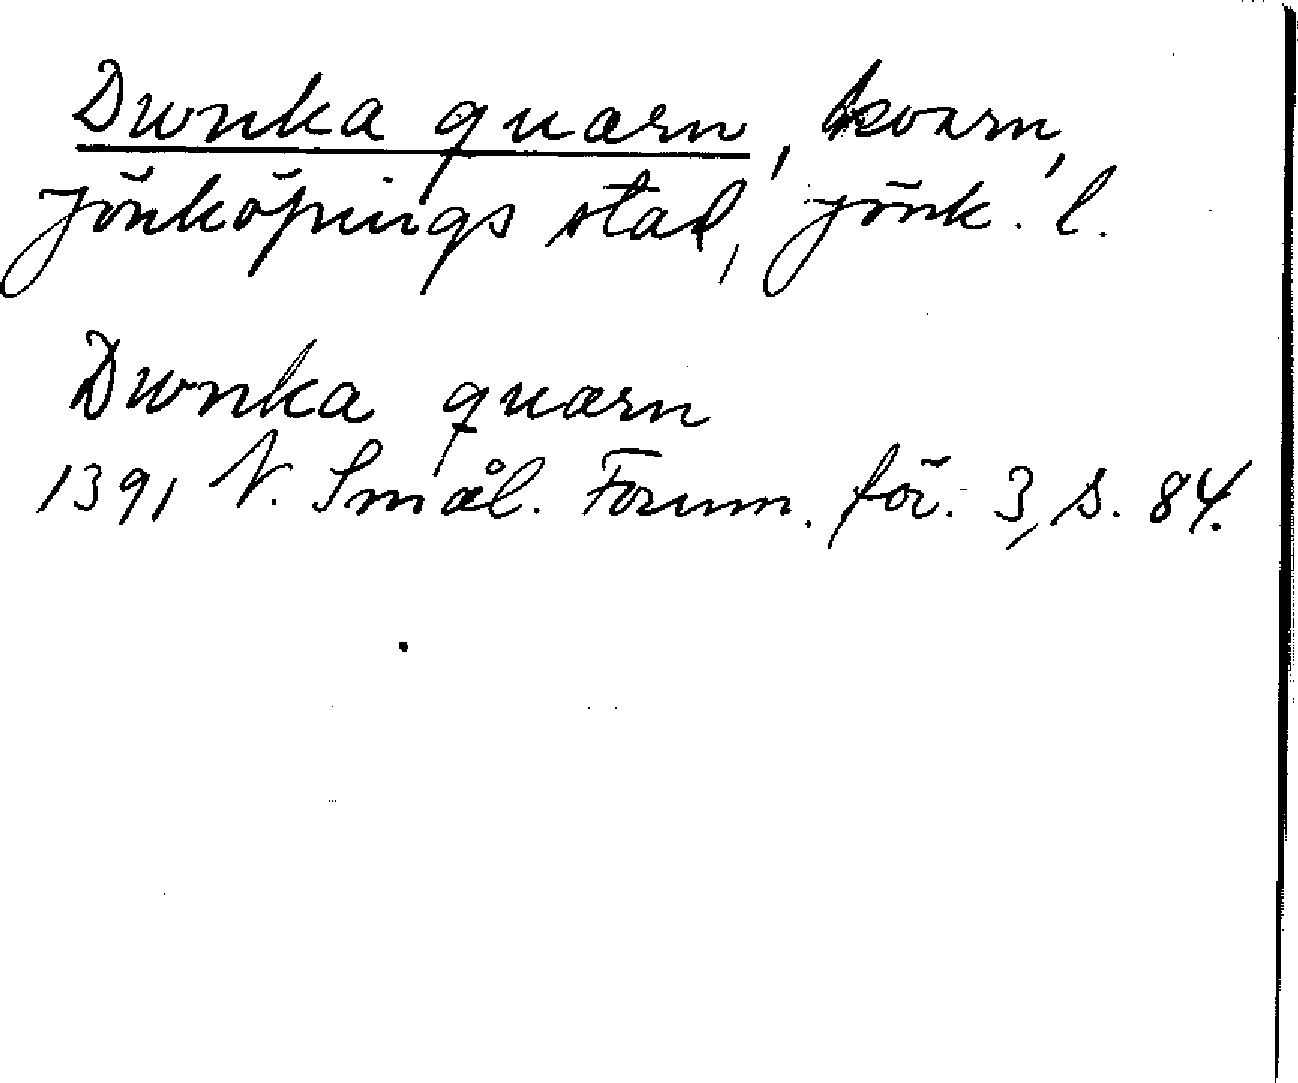 Dwnka quærn, kvarn,
Jönköpings stad, Jönk. l.
Dwnka quærn
1391 N. Smål. Fornm. för. 3, s. 84.